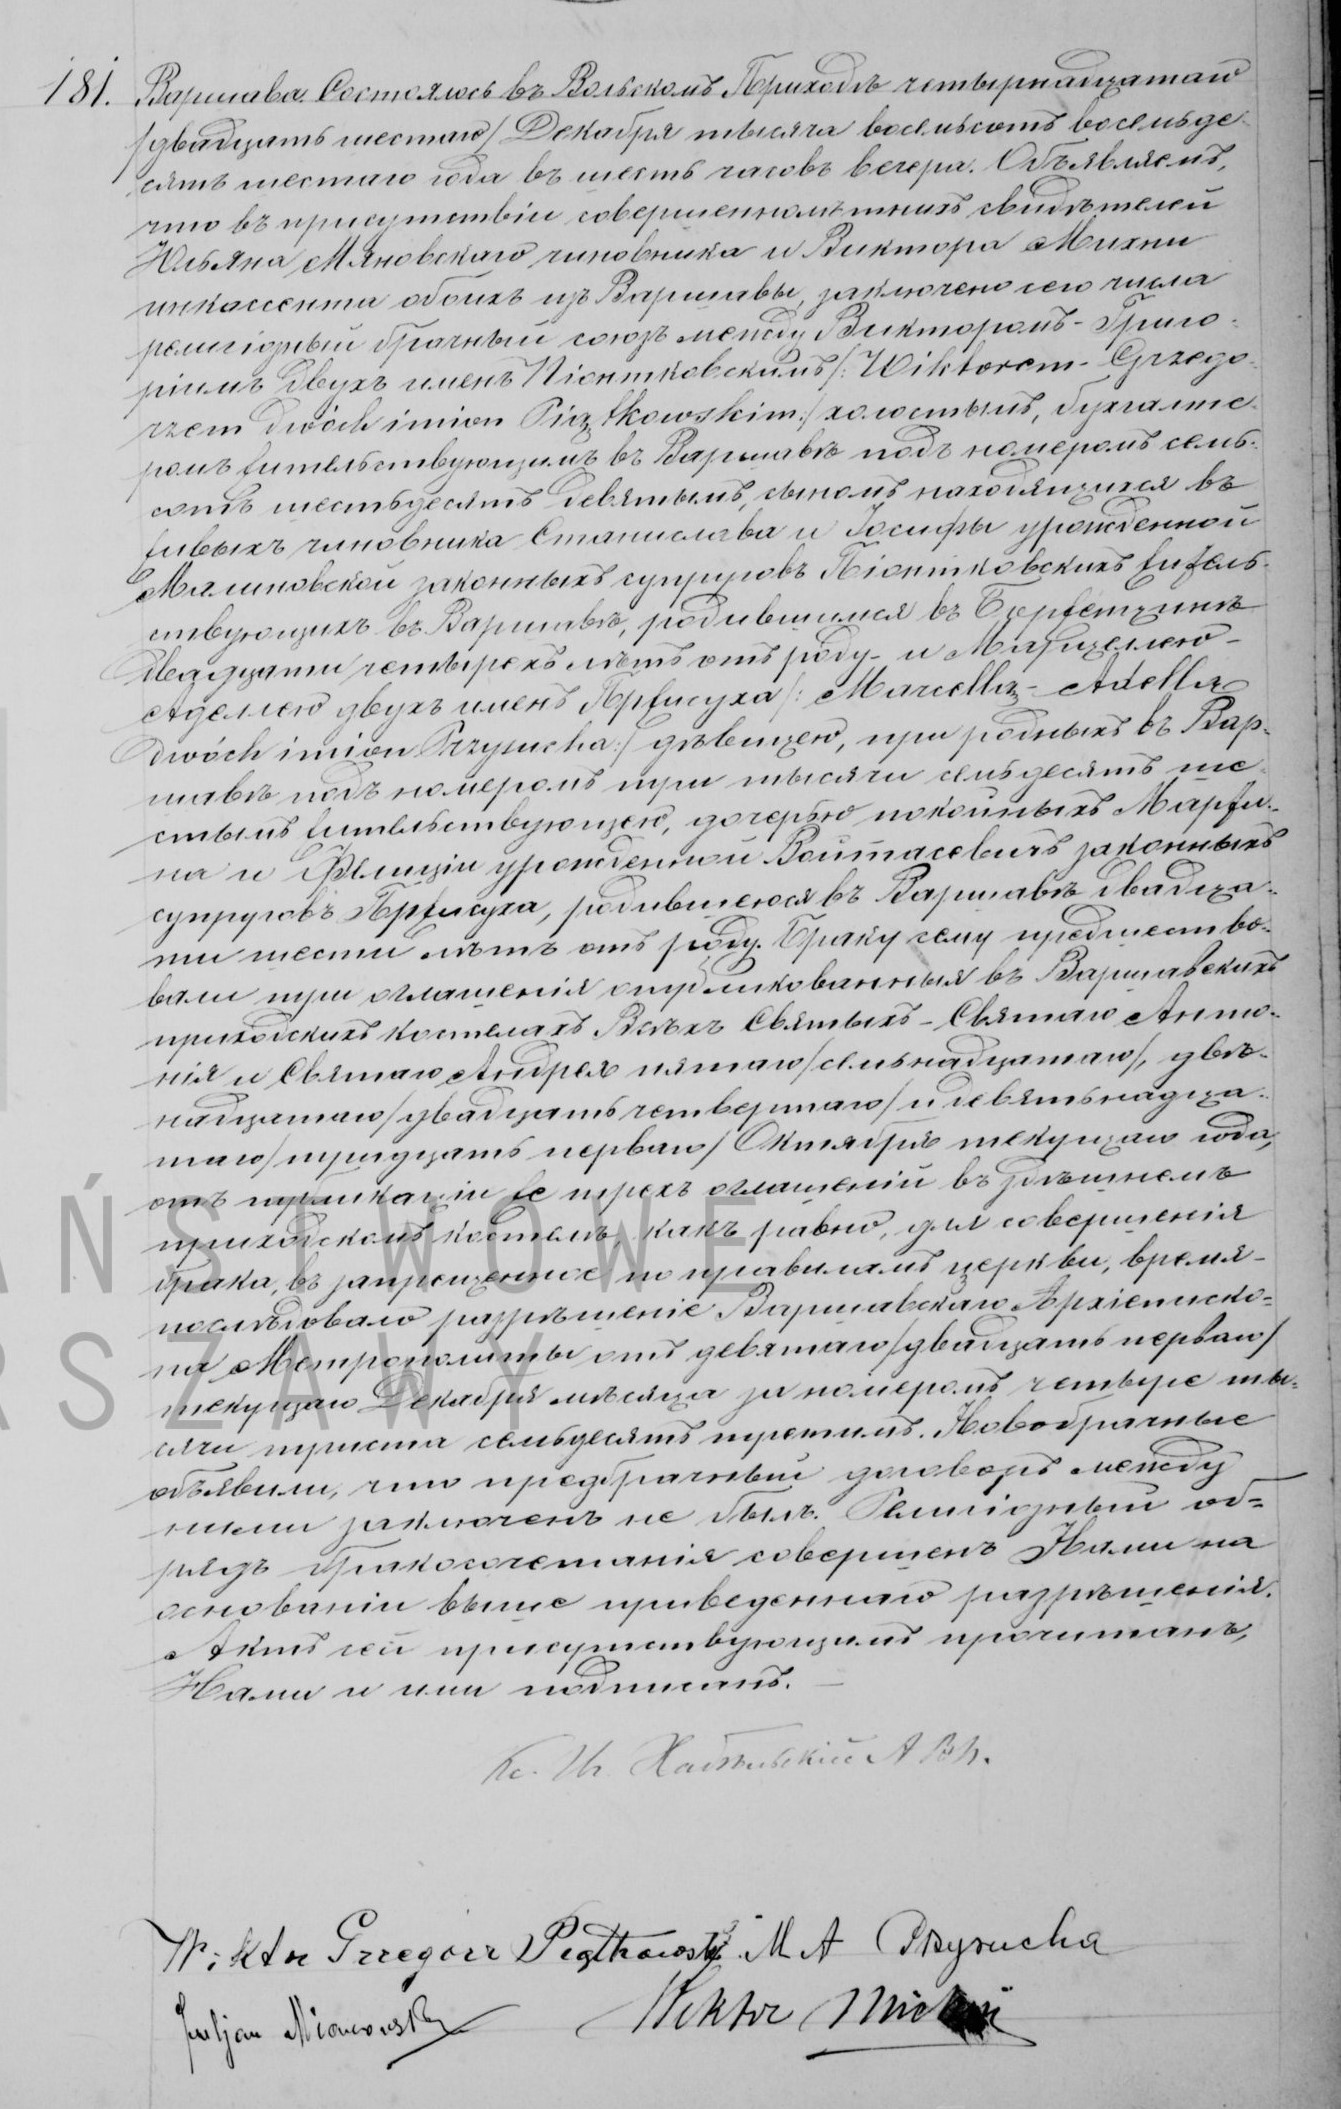 181. Варшава. Состоялось въ Вольскомъ Приходѣ четырнадцатаго
/двадцать шестаго/ Декабря тысяча восемьсотъ восемьде-
сятъ шестаго года въ шесть часовъ вечера. Объявляемъ,
что въ присутствіи совершеннолѣтнихъ свидѣтелей
Юльяна Мяновскаго чиновника и Виктора Михни
инкассента обоихъ изъ Варшавы, заключено сего числа
религіозный брачный союзъ между Викторомъ-Григо-
ріимъ двухъ именъ Піонтковскимъ /:Wiktorem-Grzego-
rzem dwóch imion Piątkowskim:/ холостымъ, бухгалте-
ромъ жительствующимъ въ Варшавѣ подъ номеромъ семь-
сотъ шестьдесятъ девятымъ, сыномъ находящихся въ
живыхъ чиновника Станислава и Іосифы урожденной
Малиновской законныхъ супруговъ Піонтковскихъ житель-
ствующихъ въ Варшавѣ, родившимся въ
двадцати четырехъ лѣтъ отъ роду - и Марцеллею-
Аделлею двухъ именъ Пржисуха /: Marcellą-Adellą
dwóch imion Przysucha:/ дѣвицею, при родныхъ въ Вар-
шавѣ подъ номеромъ три тысячи семьдесятъ ше-
стымъ жительствующею, дочерью покойныхъ Марфи-
на и Фелиціи урожденной Войтасевичъ законныхъ
супруговъ Пржисуха, родившеюся въ Варшавѣ двадца-
ти шести лѣтъ отъ роду. Браку сему предшество-
вали три оглашенія опубликованныя въ Варшавскихъ
приходскихъ костелахъ Всѣхъ Святыхъ - Святаго Анто-
нія и Святаго Андрея пятаго /семьнадцатаго/, двѣ-
надцатаго /двадцать четвертаго/ и девятьнадца-
таго /тридцать перваго/ Октября текущаго года,
отъ публикаціи же трехъ оглашеній въ здѣшнемъ
приходскомъ костелѣ, какъ равно, для совершенія
брака, въ запрещенное по правиламъ церкви, время -
послѣдовало разрѣшеніе Варшавскаго Архіеписко-
па Метрополиты отъ девятаго /двадцать перваго/
текущаго Декабря мѣсяца за номеромъ четыре ты-
сячи триста семьдесятъ третимъ. Новобрачные
объявили, что предбрачный договоръ между
ними заключенъ не былъ. Религіозный об-
рядъ бракосочетанія совершенъ Нами на
основаніи выше приведеннаго разрѣшенія.
Актъ сей присутствующимъ прочитанъ,
Нами и ими подписанъ. -
Wiktor Grzegorz Piątkowski M A Przysucha
Juljan Mianowski Wiktor